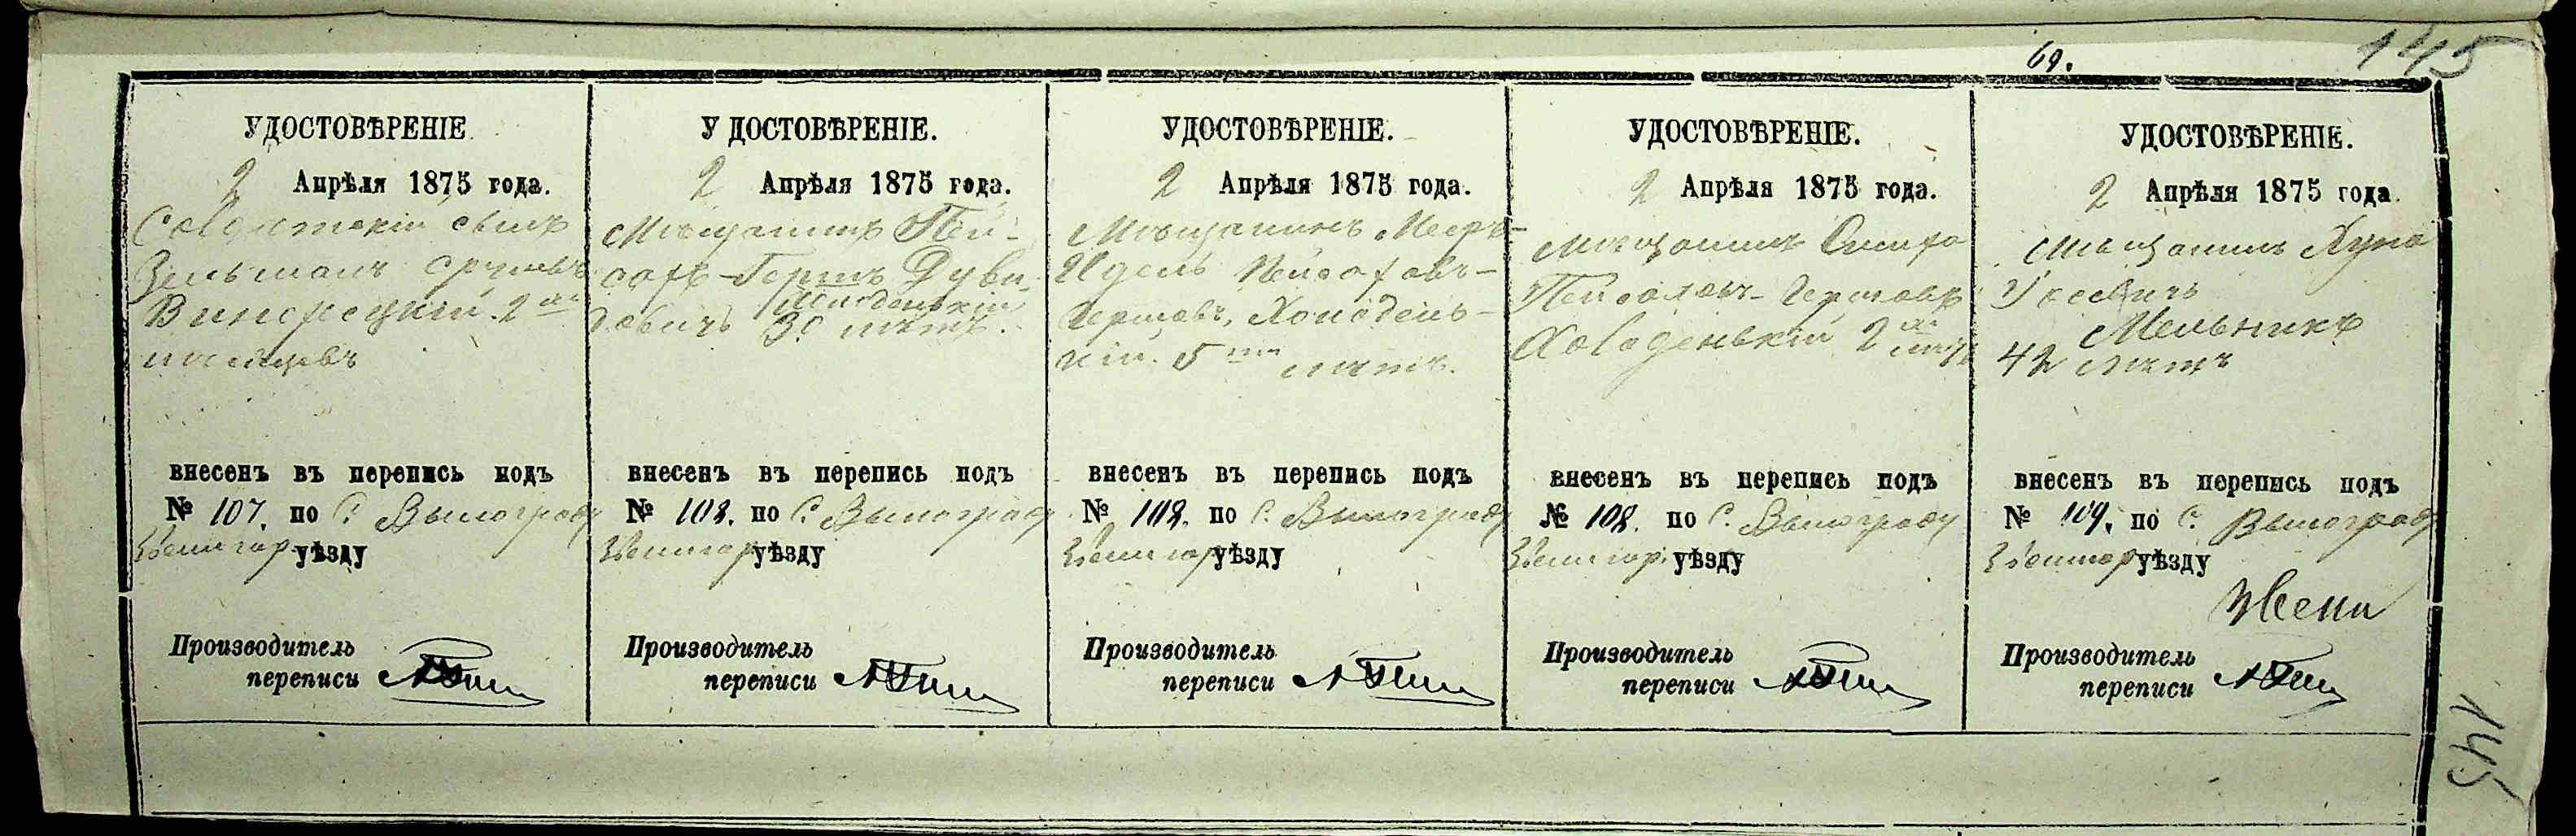 69.
145
УДОСТОВѢРЕНІЕ
2 Апрѣля 1875 года.
Солдатскій сынъ
Зельманъ Срулевъ
2хъ
мѣсяцевъ
внесенъ въ перепись подъ
№ 107. по С. Виноградъ
Звенигор. уѣзду
Производитель
переписи
УДОСТОВѢРЕНІЕ.
2 Апрѣля 1875 года.
Мѣщанинъ Пей-
сахъ-Гершъ Дуви-
Холоденькій
довичъ 30 лѣтъ.
внесенъ въ перепись подъ
№ 108. по С. Виноградъ
Звенигор уѣзду
Производитель
переписи
УДОСТОВѢРЕНІЕ.
2 Апрѣля 1875 года.
Мѣщанинъ Мееръ-
Идель Пейсаховъ-
Гершовъ, Холодень-
кій. 5ти лѣтъ.
внесенъ въ перепись подъ
№ 108. по С. Виноградъ
Звенигор уѣзду
Производитель
переписи
УДОСТОВѢРЕНІЕ.
2 Апрѣля 1875 года.
Мѣщанинъ
Пейсахов-Гершовъ
Холоденькій 2хъ лѣтъ
внесенъ въ перепись подъ
№ 108. по С. Виноградъ
Звенигор. уѣзду
Производитель
переписи
УДОСТОВѢРЕНІЕ.
2 Апрѣля 1875 года.
Мѣщанинъ
Мельникъ
42 лѣтъ
внесенъ въ перепись подъ
№ 109. по С. Виноградъ
Звенигор уѣзду
Производитель
переписи
145